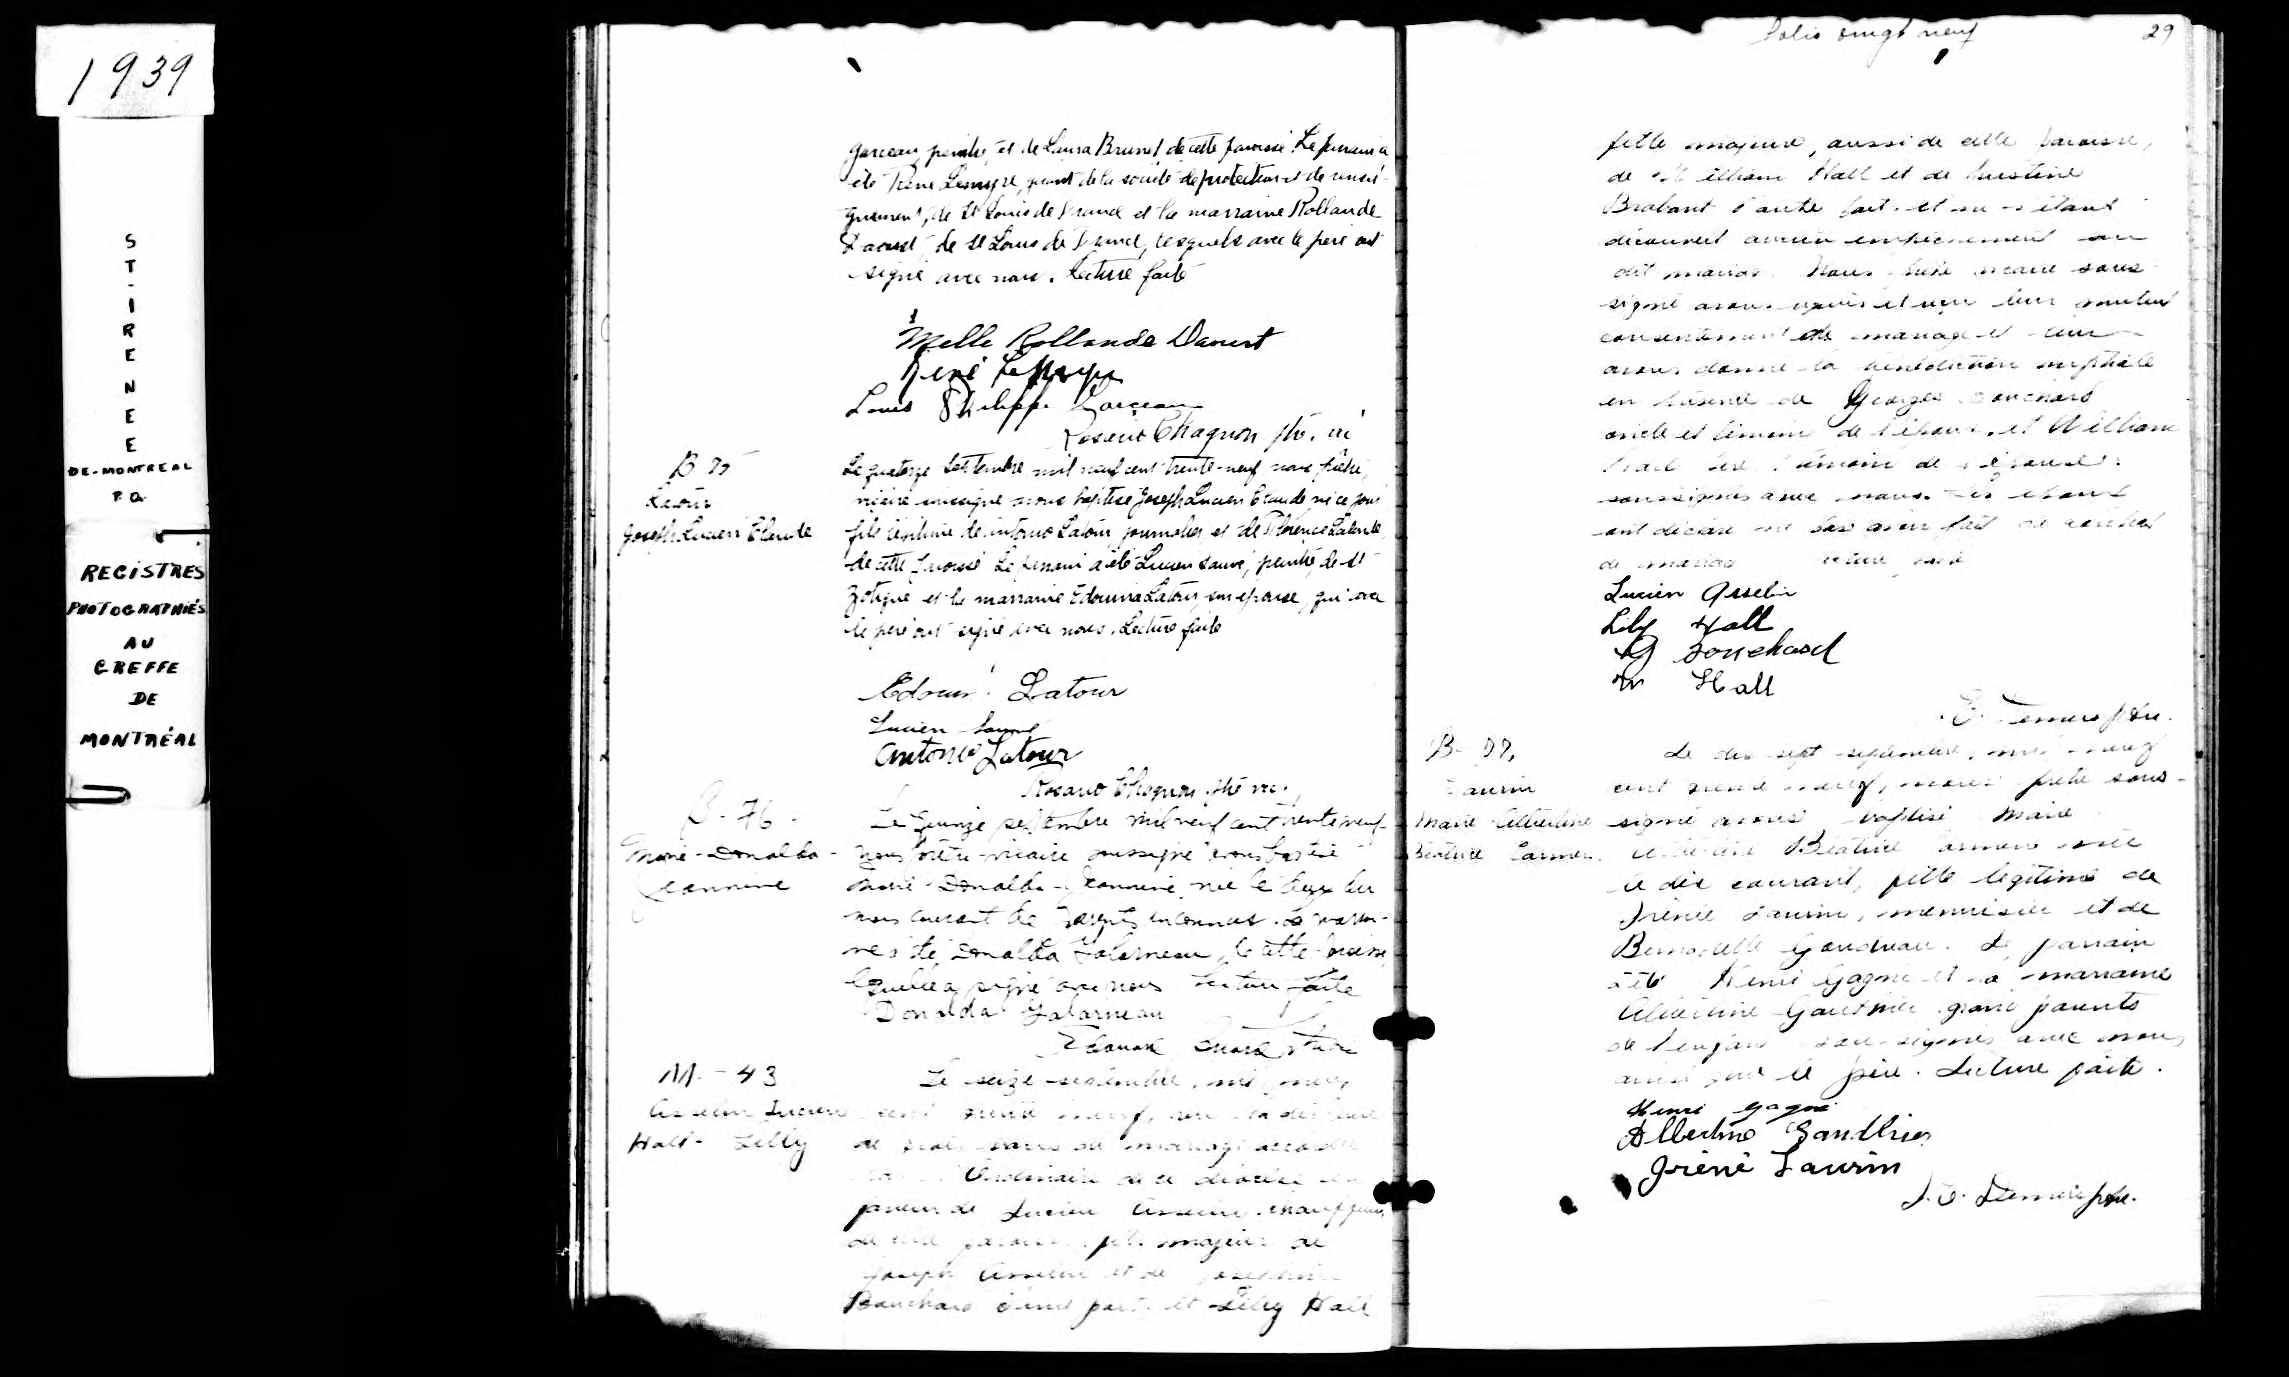 1939
ST-IRENEE
DE-MONTREAL
P.Q.
REGISTRES
PHOTOGRAPHIÉS
AU
GREFFE
DE
MONTRÉAL
Garceau, peintre, et de Laura Brunet de cette paroisse. Le parrain a
été René Lemyre, gérant de la société de protection et de rensei-
gnement, de St Louis de France et la marraine Rollande
Daoust, de St Louis de France, lesquels avec le père ont
signé avec nous. Lecture faite
Melle Rollande Daoust
René Lemyre
Louis Philippe Garceau
Rosario Chagnon ptre. vic
B 75
Latour
Joseph Lucien Claude
Le quatorze septembre mil neuf cent trente-neuf nous prêtre,
vicaire soussigné avons baptisé Joseph Lucien Claude né ce jour
fils légitime de Antonio Latour journalier et de Florence Lalonde
de cette paroisse. Le parrain a été Lucien Sauvé, peintre, de St
Zotique et la marraine Edouina Latour, son épouse, qui avec
le père ont signé avec nous. Lecture faite
Latour
Lucien Sauvé
Antonio Latour
Rosario Chagnon ptre vic.
B - 76 -
Marie-Donalda-
Jeannine
Le quinze septembre mil neuf cent trente neuf
nous prêtre vicaire soussigné avons baptisé
Marie-Donalda-Jeannine née le
mois courant de parents inconnus. La marrai-
ne a été Donalda Galarneau, de cette paroisse,
laquelle a signé avec nous Lecture faite
Donalda Galarneau
Edouard ptre
M. - 43
Asselin Lucien
Hall - Lilly
Le seize septembre, mil neuf
cent trente neuf, vu la dispense
de trois bans de mariage accordée
par l'Ordinaire de ce diocèse en
faveur de Lucien Asselin, chauffeur,
de cette paroisse, fils majeur de
Joseph Asselin et de Joséphine
Bouchard d'une part, et Lilly Hall
Folio vingt neuf 29
fille majeure, aussi de cette paroisse,
de William Hall et de
Brabant d'autre part et ne s'étant
découvert aucun empêchement au
dit mariage. Nous, prêtre sous-
signé avons requis et reçu leur mutuel
consentement de mariage et leur
avons donné la bénédiction nuptiale
en présence de Georges Bouchard
oncle et témoin de l'époux, et William
Hall père témoin de l'épouse.
soussignés avec nous. Les époux
ont déclaré ne pas avoir fait de contrat
de mariage Lecture faite
Lucien Asselin
Lily Hall
G Bouchard
W Hall
Demers ptre.
B- 77,
Laurin
Marie Albertine
Béatrice Carmen
Le dix sept septembre, mil neuf
cent trente neuf, nous prêtre sous-
signé avons baptisé Marie
Albertine Béatrice Carmen née
le dix courant, fille légitime de
Irénée Laurin, menuisier et de
Bernadette Gaudreau. Le parrain
a été Henri Gagné et la marraine
Albertine Gauthier grand parents
de l'enfant soussignés avec nous,
ainsi que le père. Lecture faite.
Henri Gagné
Albertine Gauthier
Iréné Laurin
Demers ptre.